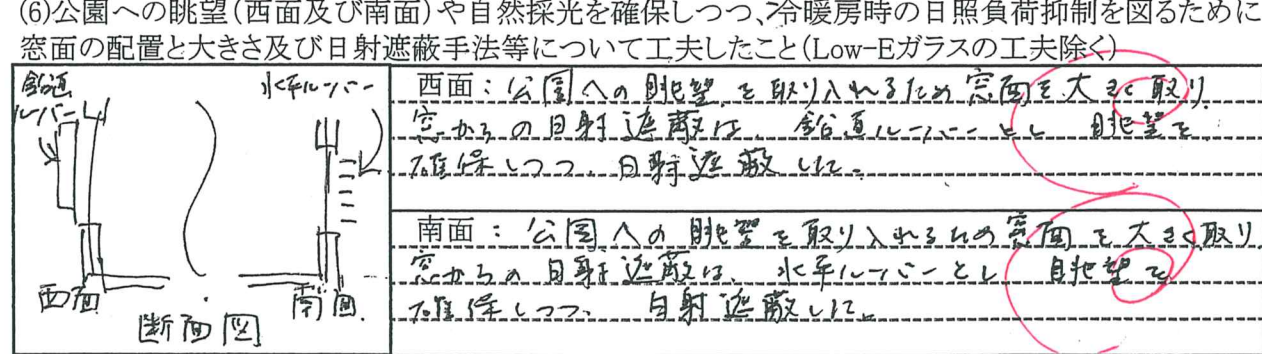 (6)公園への眺望(西面及び南面)や自然採光を確保しつつ、冷暖房時の日照負荷抑制を図るために
窓面の配置と大きさ及び日射遮蔽手法等について工夫したこと(Low-Eガラスの工夫除く)
鉛直
ルーバー
水平ルーバー
西面
南面
断面図
西面：公園への眺望を取り入れるため窓面を大きく取り
窓からの日射遮蔽は、鉛直ルーバーとし 眺望を
確保しつつ、日射遮蔽した。
南面：公園への眺望を取り入れるため窓面を大きく取り
窓からの日射遮蔽は、水平ルーバーとし 眺望を
確保しつつ、日射遮蔽した。